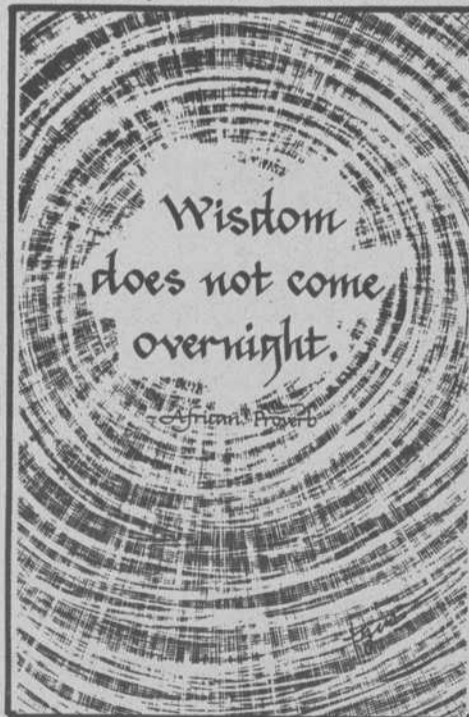 Wisdom
does not come
overnight.
- African Proverb